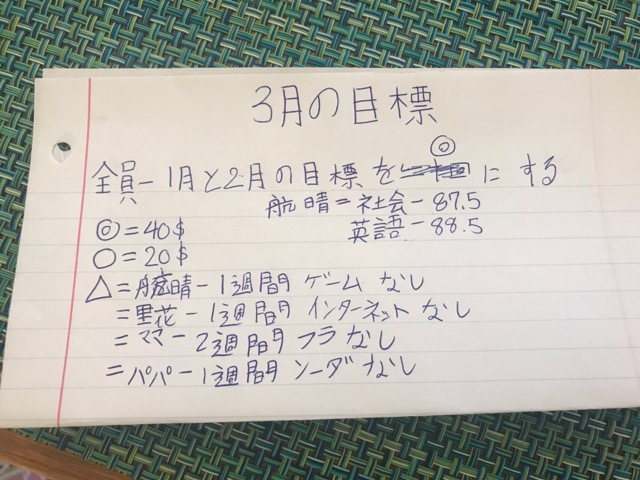 3月の目標
全員-1月と2月の目標を◎にする
航晴=社会-87.5
英語-88.5
◎=40$
○=20$
△=航晴-1週間ゲームなし
=里花-1週間インターネットなし
=ママ-2週間フラなし
=パパ-1週間ソーダなし